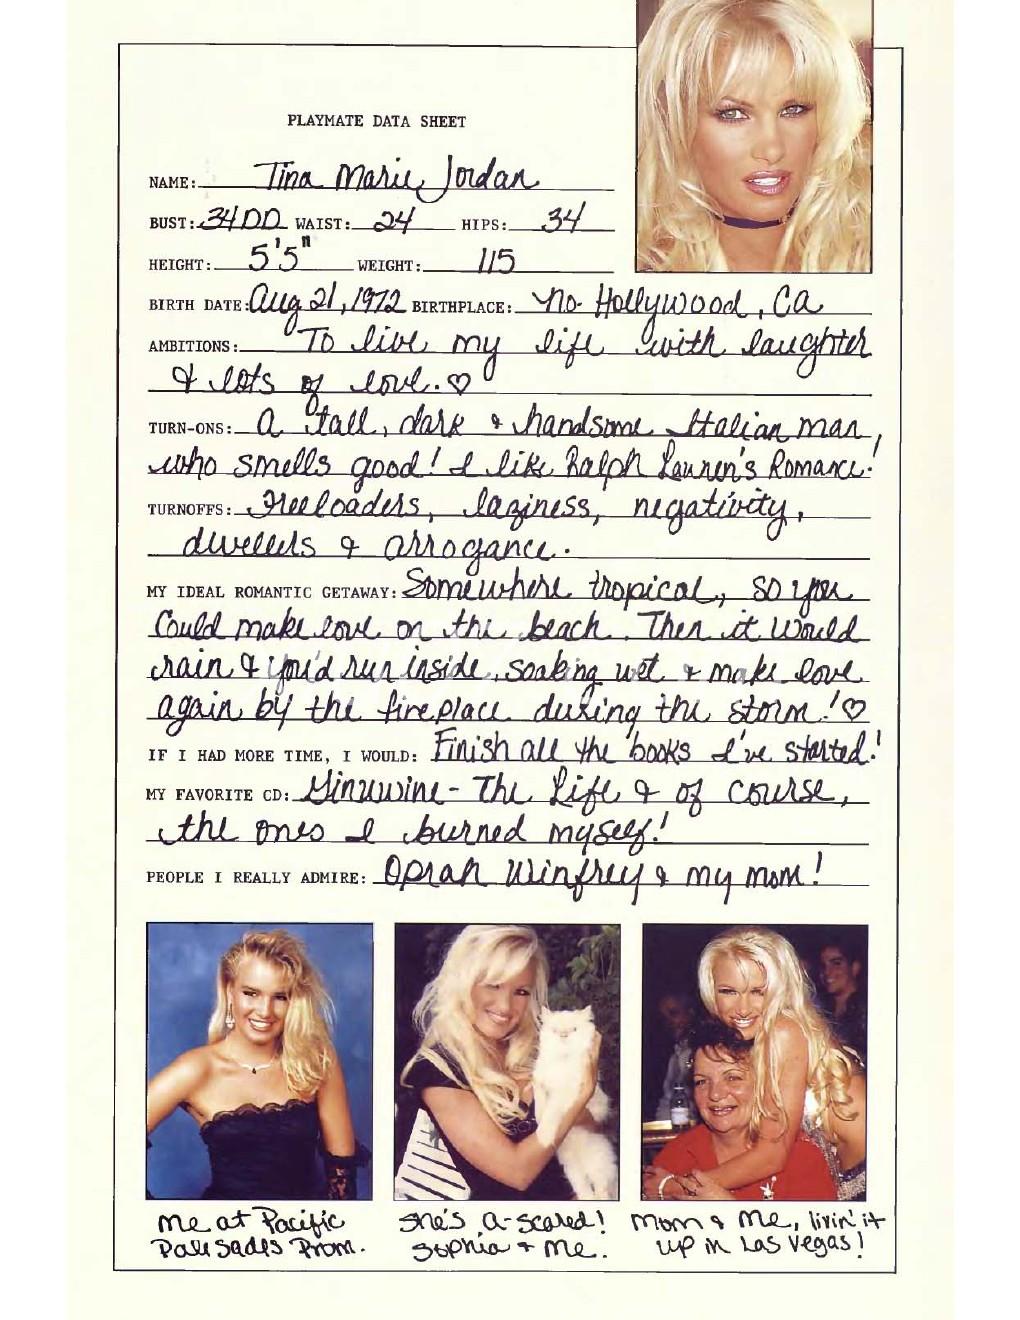 PLAYMATE DATA SHEET
NAME: Tina Marie Jordan
BUST: 34DD WAIST: 24 HIPS: 34
HEIGHT: 5'5" WEIGHT: 115
BIRTH DATE: Aug 21, 1972 BIRTHPLACE: No. Hollywood, CA
AMBITIONS: To live my life with laughter
& lots of love. ♡
TURN-ONS: A tall, dark & handsome Italian man,
who smells good! I like Ralph Lauren's Romance!
TURNOFFS: Freeloaders, laziness, negativity,
dwellers & arrogance.
MY IDEAL ROMANTIC GETAWAY: Somewhere tropical, so you
could make love on the beach. Then it would
rain & you'd run inside, soaking wet & make love
again by the fireplace during the storm! ♡
IF I HAD MORE TIME, I WOULD: Finish all the books I've started!
MY FAVORITE CD: Ginuwine - The Life & of course,
the ones I burned myself!
PEOPLE I REALLY ADMIRE: Oprah Winfrey & my mom!
Me at Pacific
Palisades Prom.
She's a-scared!
Sophia & Me.
Mom & Me, livin' it
up in Las Vegas!